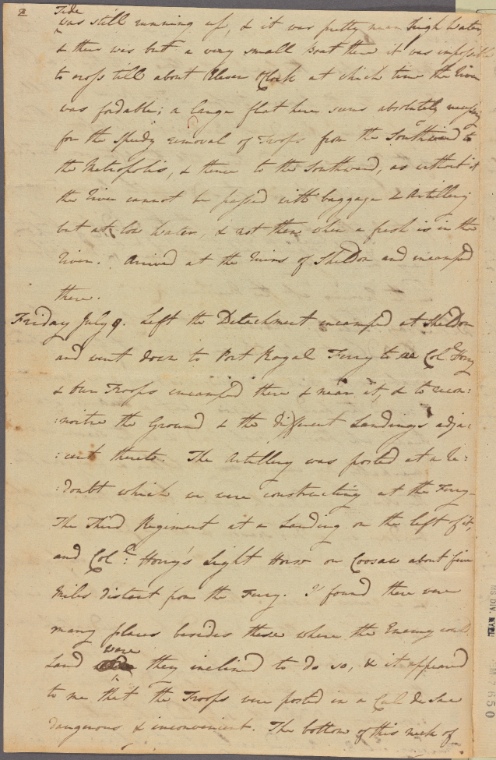 2
Tide
was still running up, & it was pretty near high Water,
& there was but a very small Boat there it was impossible
to cross till about Eleven oClock at which time the River
was fordable; a large flat here seems absolutely necessary
for the speedy removal of Troops from the Southward to
the Metropolis, & thence to the Southward, as without it
the River cannot be passed with baggage & Artillery
but at low Water, & not then when a fresh is in the
River. Arrived at the Ruins of Sheldon and encamped
there.
Friday July 9. Left the Detachment encamped at Sheldon
and went down to Port Royal Ferry to see Col.
& our Troops encamped there & near it, & to recon:
:noitre the Ground & the different Landings adja:
:cent thereto. The Artillery was posted at a Re:
:doubt which we were constructing at the Ferry
The Third Regiment at a Landing on the left of it,
and Col. Horry's Light Horse on Coosaw about five
Miles distant from the Ferry. I found there were
many places besides these where the Enemy could
were
Land they inclined to do so, & it appeared
to me that the Troops were posted in a Cul de Sac
dangerous & inconvenient. The bottom of this neck of
650